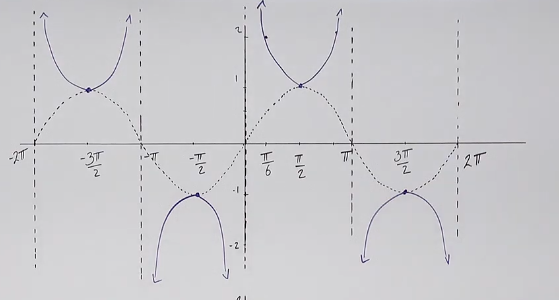 2
1
-2π -3π/2 -π -π/2 π/6 π/2 π 3π/2 2π
-1
-2